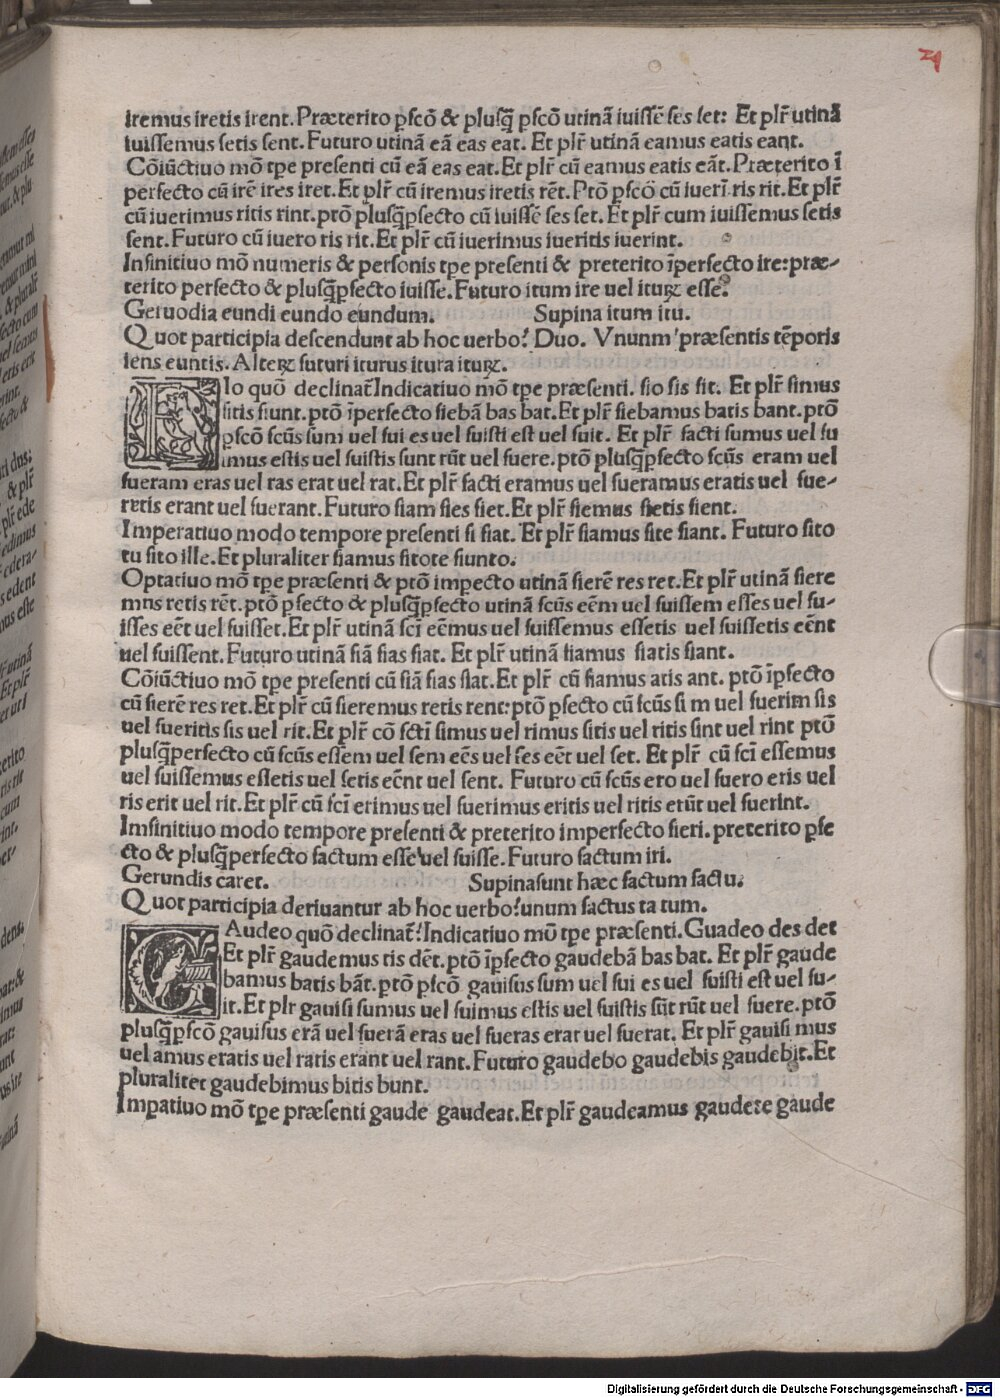 29
iremus iretis irent. Præterito ꝑfcō & plusq̄ ꝑfcō utinā iuissē ses set: Et plr̄ utinā
iuissemus setis sent. Futuro utinā eā eas eat. Et plr̄ utinā eamus eatis eant.
Cōiūctiuo mō tꝑe presenti cū eā eas eat. Et plr̄ cū eamus eatis eāt. Præterito ī
perfecto cū irē ires iret. Et plr̄ cū iremus iretis rēt. Ptō ꝑfcō cū iueri ris rit. Et plr̄
cū iuerimus ritis rint. ptō plusq̄ꝑfecto cū iuissē ses set. Et plr̄ cum iuissemus setis
sent. Futuro cū iuero ris rit. Et plr̄ cū iuerimus iueritis iuerint.
Infinitiuo mō numeris & personis tꝑe presenti & preterito īperfecto ire: præ-
terito perfecto & plusq̄ꝑfecto iuisse. Futuro itum ire uel ituꝝ esse.
Geruodia eundi eundo eundum. Supina itum itu.
Quot participia descendunt ab hoc uerbo? Duo. Vnunm præsentis tēporis
iens euntis. Alteꝝ futuri iturus itura ituꝝ.
Io quō declinat̄ Indicatiuo mō tꝑe præsenti. fio fis fit. Et plr̄ fimus
fitis fiunt. ptō īperfecto fiebā bas bat. Et plr̄ fiebamus batis bant. ptō
ꝑfcō fcūs sum uel fui es uel fuisti est uel fuit. Et plr̄ facti sumus uel fu
imus estis uel fuistis sunt rūt uel fuere. ptō plusq̄ꝑfecto fcūs eram uel
fueram eras uel ras erat uel rat. Et plr̄ facti eramus uel fueramus eratis uel fue-
retis erant uel fuerant. Futuro fiam fies fiet. Et plr̄ fiemus fietis fient.
Imperatiuo modo tempore presenti fi fiat. Et plr̄ fiamus fite fiant. Futuro fito
tu fito ille. Et pluraliter fiamus fitote fiunto.
Optatiuo mō tꝑe præsenti & ptō impecto utinā fierē res ret. Et plr̄ utinā fiere
mns retis rēt. ptō ꝑfecto & plusq̄ꝑfecto utinā fcūs eēm uel fuissem esses uel fu-
isses eēt uel fuisset. Et plr̄ utinā fcī eēmus uel fuissemus essetis uel fuissetis eēnt
uel fuissent. Futuro utinā fiā fias fiat. Et plr̄ utinā fiamus fiatis fiant.
Cōiūctiuo mō tꝑe presenti cū fiā fias fiat. Et plr̄ cū fiamus atis ant. ptō īꝑfecto
cū fierē res ret. Et plr̄ cū fieremus retis rent: ptō ꝑfecto cū fcūs si m uel fuerim sis
uel fueritis sis uel rit. Et plr̄ cō fctī simus uel rimus sitis uel ritis sint uel rint ptō
plusq̄perfecto cū fcūs essēm uel sem eēs uel ses eēt uel set. Et plr̄ cū fcī essemus
uel fuissemus essetis uel setis eēnt uel sent. Futuro cū fcūs ero uel fuero eris uel
ris erit uel rit. Et plr̄ cū fcī erimus uel fuerimus eritis uel ritis erūt uel fuerint.
Imfinitiuo modo tempore presenti & preterito imperfecto fieri. preterito ꝑfe
cto & plusq̄perfecto factum esse uel fuisse. Futuro factum iri.
Gerundis caret. Supina sunt hæc factum factu.
Quot participia deriuantur ab hoc uerbo? unum factus ta tum.
Audeo quō declinat̄? Indicatiuo mō tꝑe præsenti. Guadeo des det
Et plr̄ gaudemus tis dēt. ptō īꝑfecto gaudebā bas bat. Et plr̄ gaude
bamus batis bāt. ptō ꝑfcō gauisus sum uel fui es uel fuisti est uel fu-
it. Et plr gauisi sumus uel fuimus estis uel fuistis sūt rūt uel fuere. ptō
plusq̄ꝑfcō gauisus erā uel fuerā eras uel fueras erat uel fuerat. Et plr̄ gauisi mus
uel amus eratis uel ratis erant uel rant. Futuro gaudebo gaudebis gaudebit. Et
pluraliter gaudebimus bitis bunt.
Impatiuo mō tꝑe præsenti gaude gaudeat. Et plr̄ gaudeamus gaudete gaude
Digitalisierung gefördert durch die Deutsche Forschungsgemeinschaft - DFG